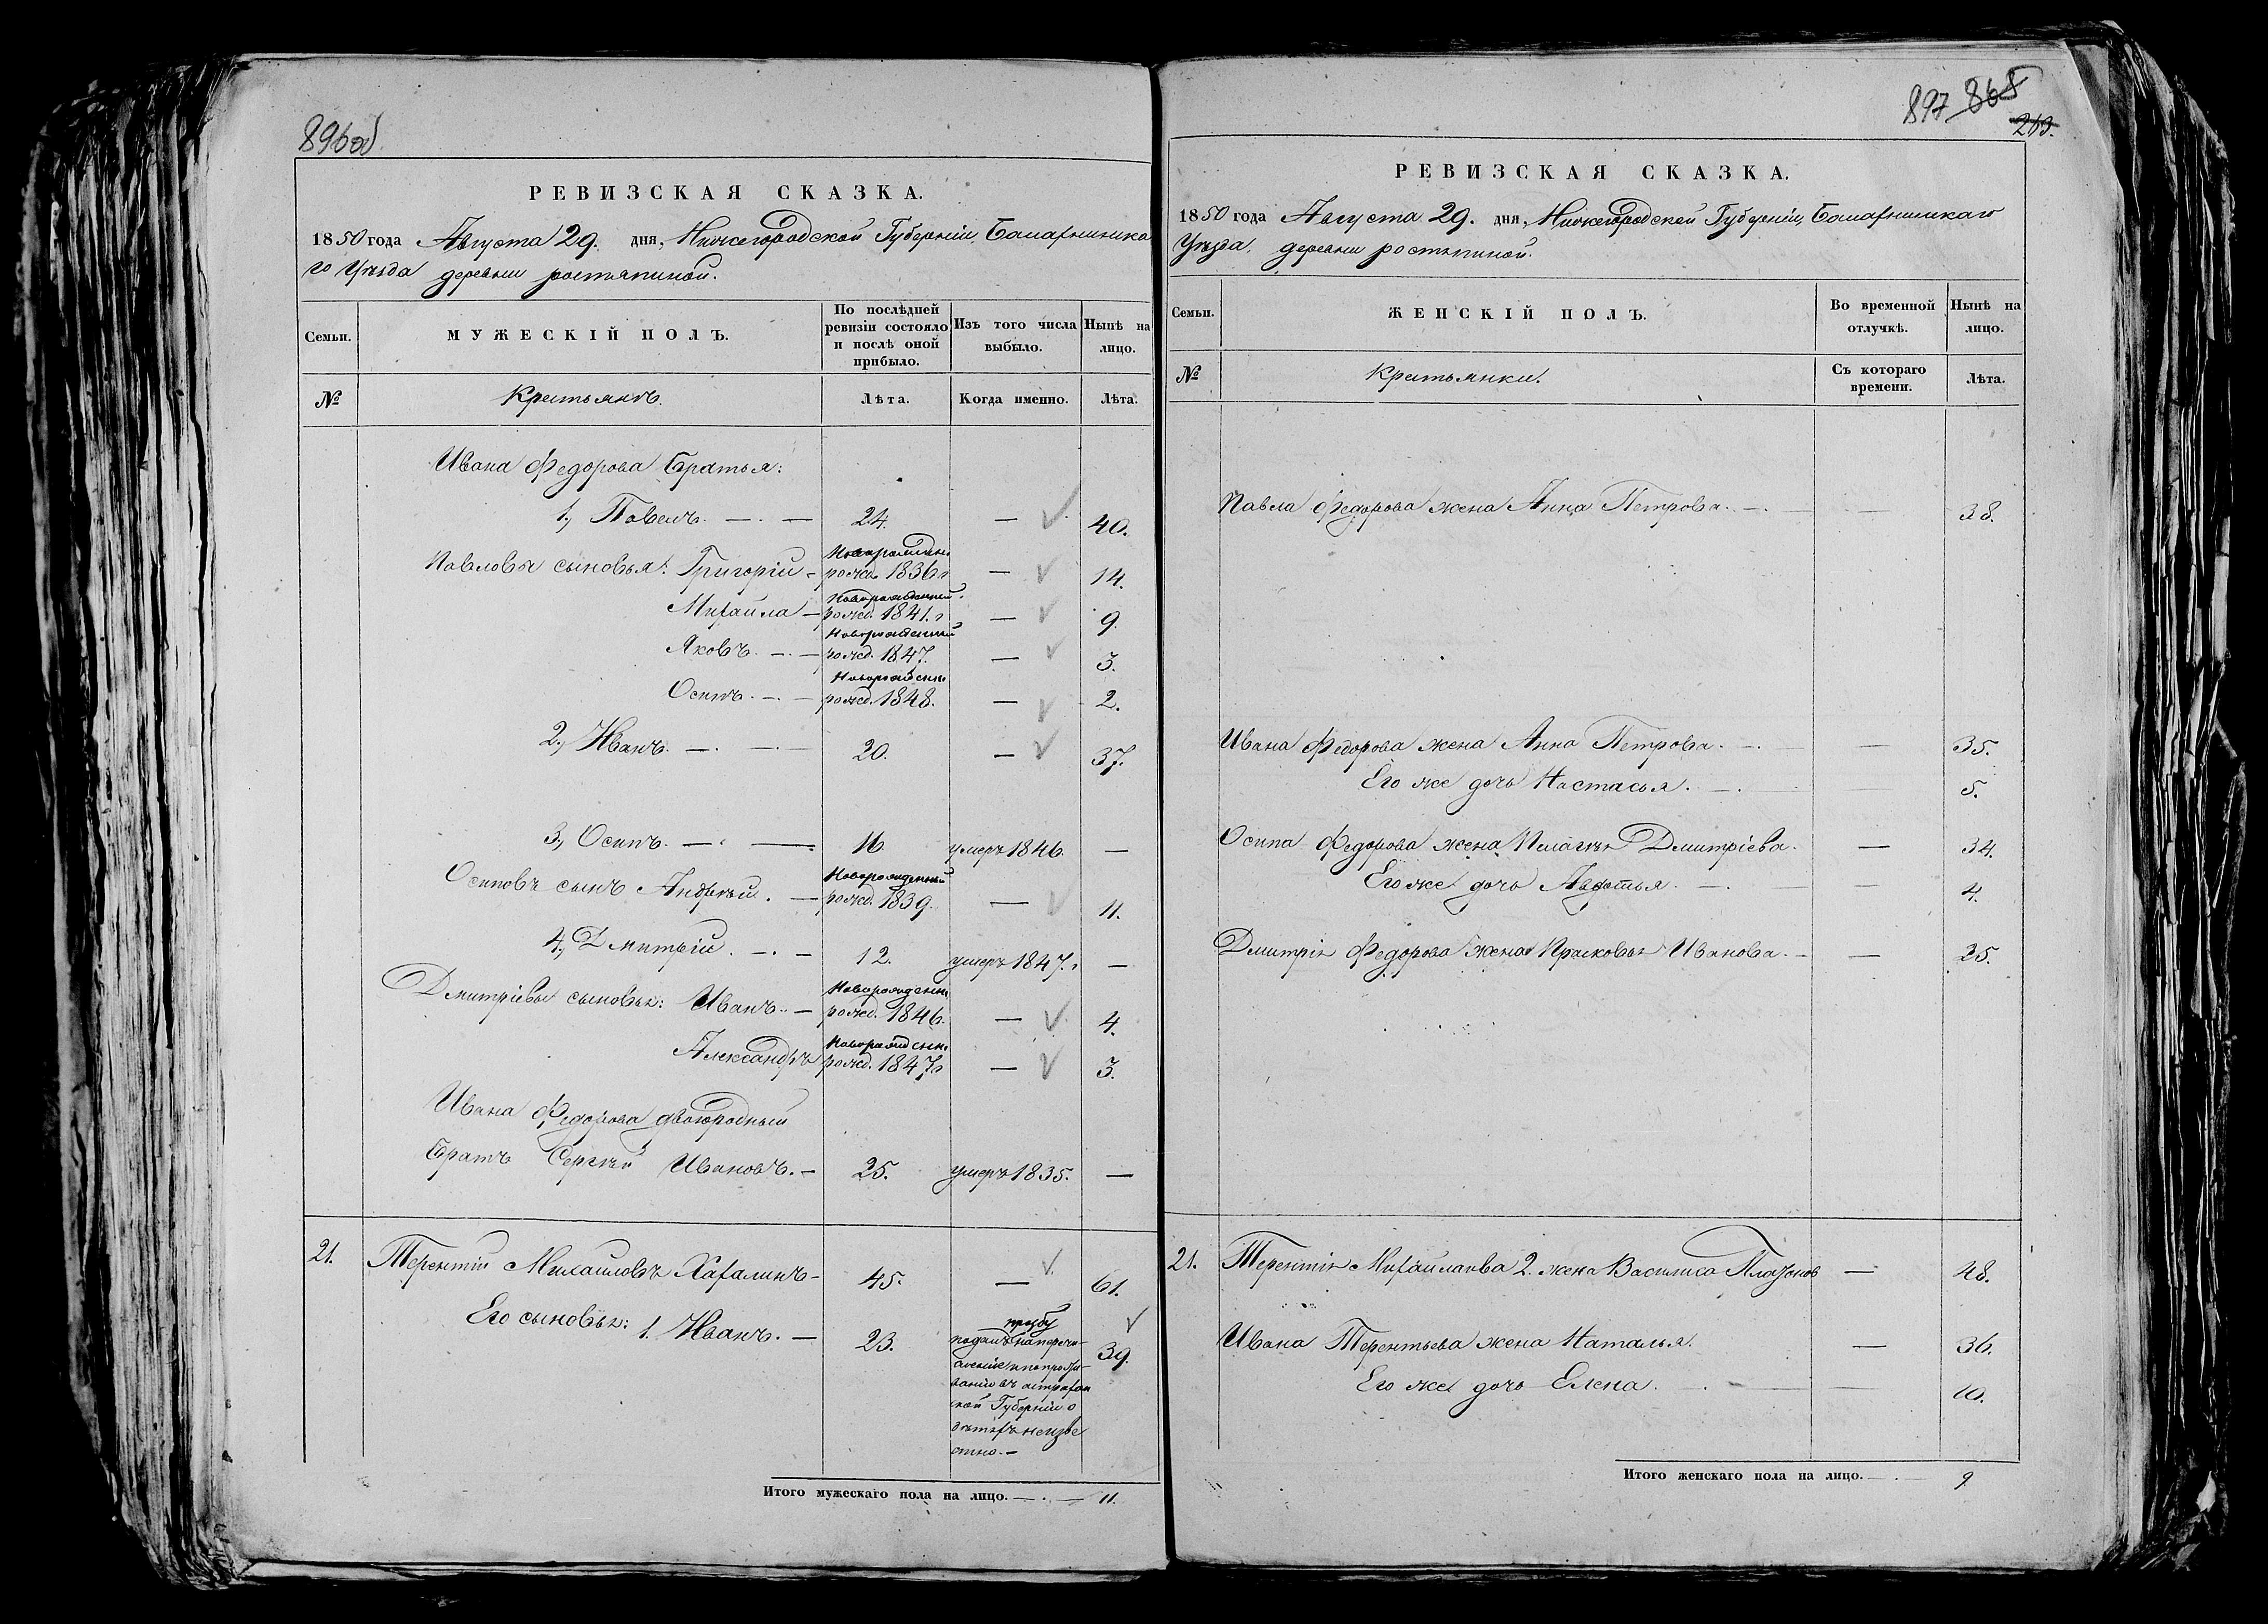 896об
РЕВИЗСКАЯ СКАЗКА.
1850 года Августа 29. дня, Нижегородской Губерніи, Балахнинска
го Уѣзда деревни ростяпиной.
Семьи.
МУЖЕСКІЙ ПОЛЪ.
По послѣдней ревизіи состояло и послѣ оной прибыло.
Изъ того числа выбыло.
Нынѣ на лицо.
№
Крестьянъ.
Лѣта.
Когда именно.
Лѣта.
Ивана Федорова братья:
1, Павелъ. — 24. — 40.
Павловы сыновья: Григорій — Новорожден. рожд. 1836 г — 14.
Михайла — Новорожденный рожд. 1841. г — 9.
Яковъ. — Новорожденный рожд. 1847. — 3.
Осипъ. — Новорожденн рожд. 1848. — 2.
2, Иванъ. — 20. — 37.
3, Осипъ. — 16 умеръ 1846. —
Осиповъ сынъ Андрей. — Новорожденный рожд. 1839. — 11.
4, Дмитрій. — 12. умеръ 1847. г —
Дмитріевы сыновья: Иванъ. — Новорожденн рожд. 1846. — 4.
Александръ Новорожденн рожд. 1847 г — 3.
Ивана Федорова двоюродный
братъ Сергѣй Ивановъ. — 25. умеръ 1835. —
21. Терентій Михаиловъ Хахалинъ — 45. — 61.
Его сыновья: 1. Иванъ. — 23. прозбу 39.
подалъ на перечи-
сленіе и по прожи-
ванію въ астрахан
ской Губерніи о
дѣтяхъ неизве
стно. —
Итого мужескаго пола на лицо. — 11.
897 868
263.
РЕВИЗСКАЯ СКАЗКА.
1850 года Августа 29. дня, Нижегородской Губерніи, Балахнинскаго
Уѣзда, деревни ростяпиной.
Семьи.
ЖЕНСКІЙ ПОЛЪ.
Во временной отлучкѣ.
Нынѣ на лицо.
№
Крестьянки.
Съ котораго времени.
Лѣта.
Павла Федорова жена Анна Петрова. — — 38.
Ивана Федорова жена Анна Петрова. — — 35.
Его же дочь Настасья. — — 5.
Осипа Федорова жена Пелагѣя Дмитріева. — 34.
Его же дочь Авдотья. — — 4.
Дмитрія Федорова жена Прасковья Иванова. — — 25.
21. Терентія Михайлаова 2. жена Василиса Платонов — 48.
Ивана Терентьева жена Наталья. — 36.
Его же дочь Елена. — — 10.
Итого женскаго пола на лицо. — 9